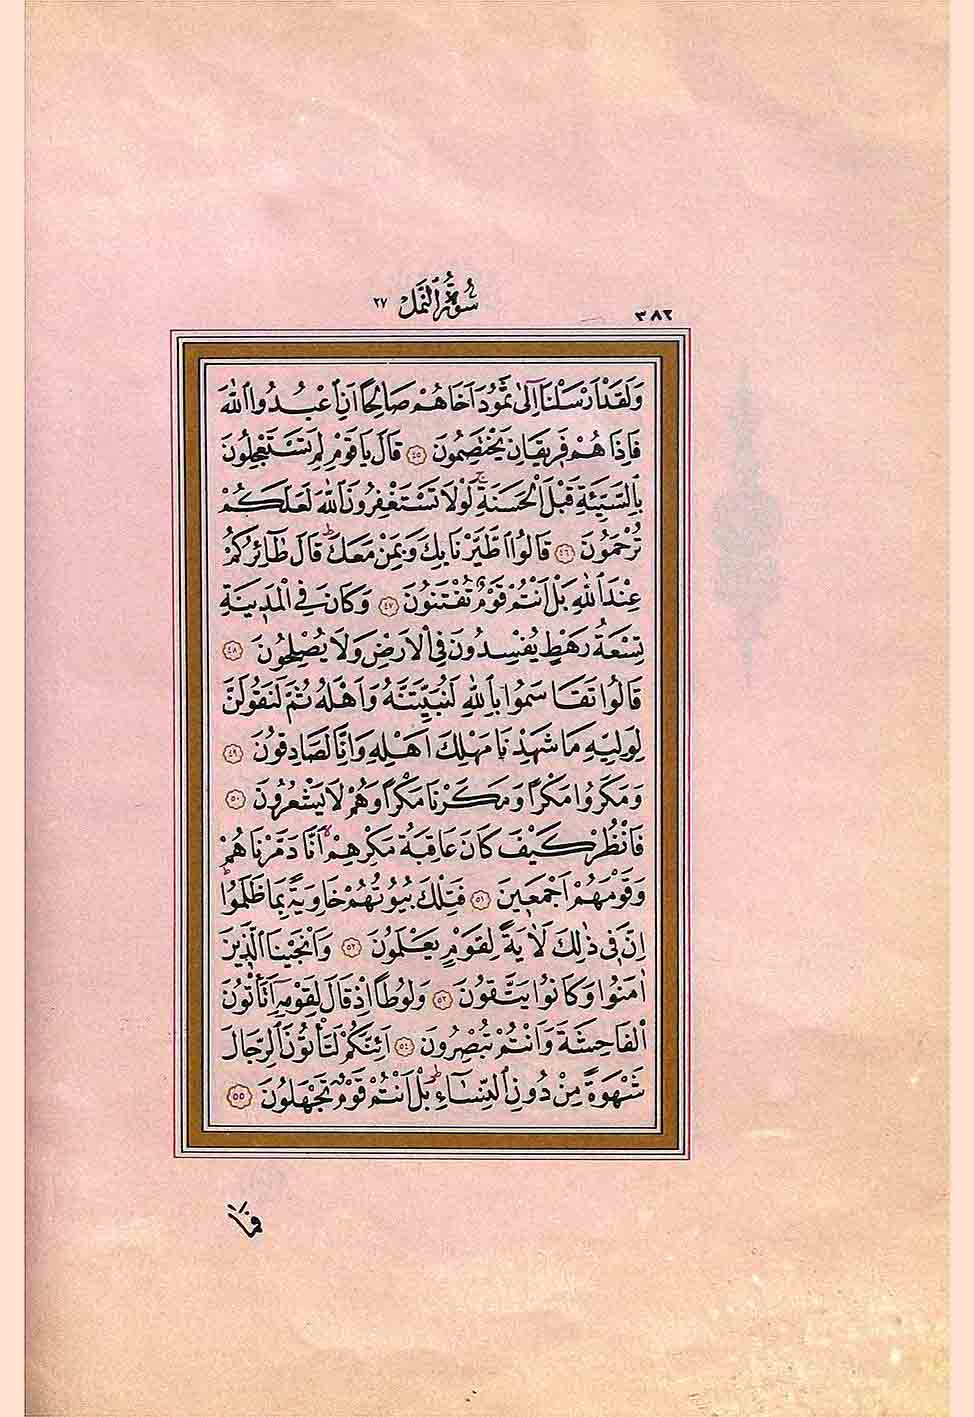 ٣٨٢ سُورَةُ النَّمْلِ ٢٧
وَلَقَدْ اَرْسَلْنَٓا اِلٰى ثَمُودَ اَخَاهُمْ صَالِحًا اَنِ اعْبُدُوا اللّٰهَ
فَاِذَا هُمْ فَرٖيقَانِ يَخْتَصِمُونَ ﴿٤٥﴾ قَالَ يَا قَوْمِ لِمَ تَسْتَعْجِلُونَ
بِالسَّيِّئَةِ قَبْلَ الْحَسَنَةِۚ لَوْلَا تَسْتَغْفِرُونَ اللّٰهَ لَعَلَّكُمْ
تُرْحَمُونَ ﴿٤٦﴾ قَالُوا اطَّيَّرْنَا بِكَ وَبِمَنْ مَعَكَۜ قَالَ طَٓائِرُكُمْ
عِنْدَ اللّٰهِ بَلْ اَنْتُمْ قَوْمٌ تُفْتَنُونَ ﴿٤٧﴾ وَكَانَ فِي الْمَدٖينَةِ
تِسْعَةُ رَهْطٍ يُفْسِدُونَ فِي الْاَرْضِ وَلَا يُصْلِحُونَ ﴿٤٨﴾
قَالُوا تَقَاسَمُوا بِاللّٰهِ لَنُبَيِّتَنَّهُ وَاَهْلَهُ ثُمَّ لَنَقُولَنَّ
لِوَلِيِّهٖ مَا شَهِدْنَا مَهْلِكَ اَهْلِهٖ وَاِنَّا لَصَادِقُونَ ﴿٤٩﴾
وَمَكَرُوا مَكْرًا وَمَكَرْنَا مَكْرًا وَهُمْ لَا يَشْعُرُونَ ﴿٥٠﴾
فَانْظُرْ كَيْفَ كَانَ عَاقِبَةُ مَكْرِهِمْۙ اَنَّا دَمَّرْنَاهُمْ
وَقَوْمَهُمْ اَجْمَعٖينَ ﴿٥١﴾ فَتِلْكَ بُيُوتُهُمْ خَاوِيَةً بِمَا ظَلَمُواۜ
اِنَّ فٖي ذٰلِكَ لَاٰيَةً لِقَوْمٍ يَعْلَمُونَ ﴿٥٢﴾ وَاَنْجَيْنَا الَّذٖينَ
اٰمَنُوا وَكَانُوا يَتَّقُونَ ﴿٥٣﴾ وَلُوطًا اِذْ قَالَ لِقَوْمِهٖٓ اَتَأْتُونَ
الْفَاحِشَةَ وَاَنْتُمْ تُبْصِرُونَ ﴿٥٤﴾ اَئِنَّكُمْ لَتَأْتُونَ الرِّجَالَ
شَهْوَةً مِنْ دُونِ النِّسَٓاءِۜ بَلْ اَنْتُمْ قَوْمٌ تَجْهَلُونَ ﴿٥٥﴾
فَمَا